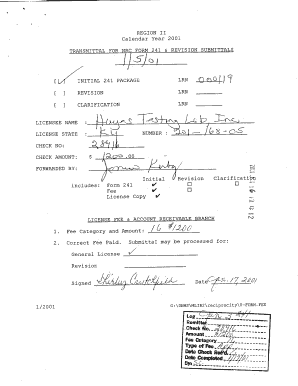 REGION II
Calendar Year 2001
TRANSMITTAL FOR NRC FORM 241 & REVISION SUBMITTALS
1/5/01
[✓] INITIAL 241 PACKAGE LRN 000119
[ ] REVISION LRN
[ ] CLARIFICATION LRN
LICENSEE NAME Testing Lab Inc.
LICENSE STATE : KY NUMBER : 201-168-05
CHECK NO: 28916
CHECK AMOUNT: $ 1200.00
FORWARDED BY:
Initial Revision Clarification
includes: Form 241 ✓ □ □
Fee ✓ □
License Copy ✓
LICENSE FEE & ACCOUNT RECEIVABLE BRANCH
1. Fee Category and Amount: 16 $1200
2. Correct Fee Paid. Submittal may be processed for:
General License ✓
Revision
Signed Shirley Crutchfield Date 17, 2001
1/2001
Log
Remitter
Check No. 28916
Amount
Fee Category
Type of Fee
Date Check Rec'd.
Date Completed
By: